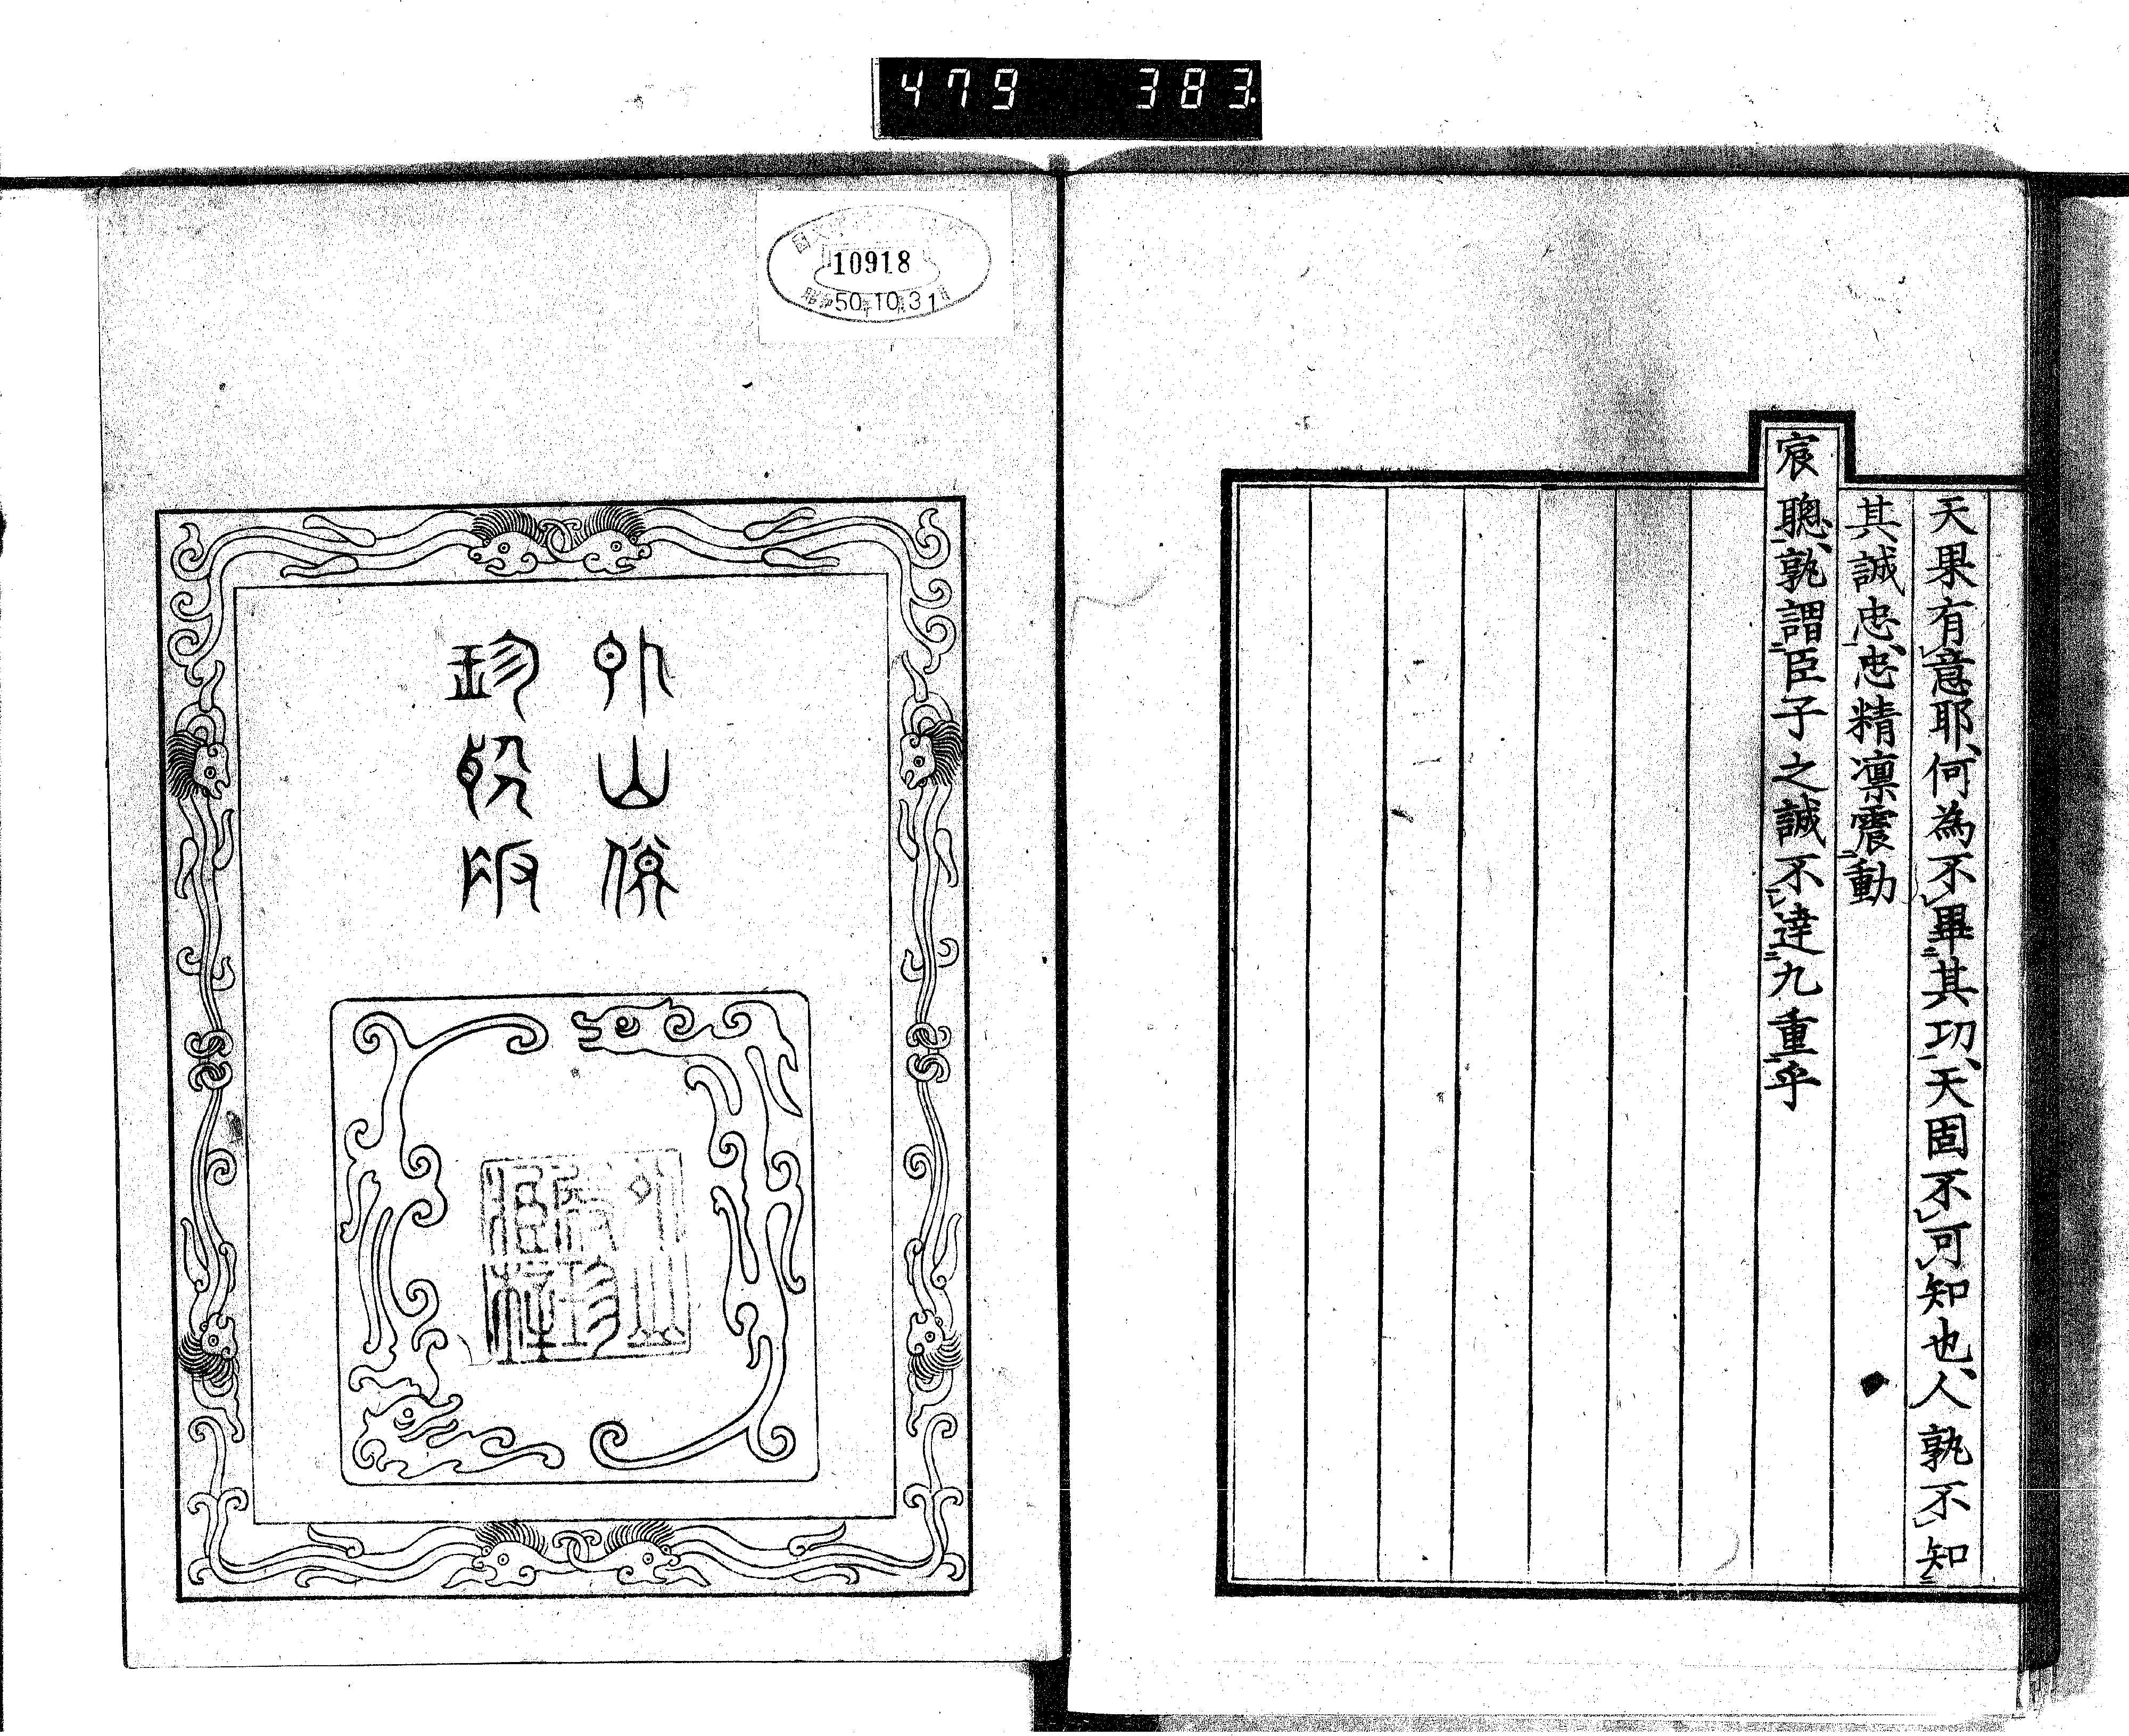 479 383
天果有意耶何為不畢其功天固不可知也人孰不知
其誠忠忠精凛震動
宸聰孰謂臣子之誠不達九重乎
10918
昭和50年10月31日
外山
珍
版